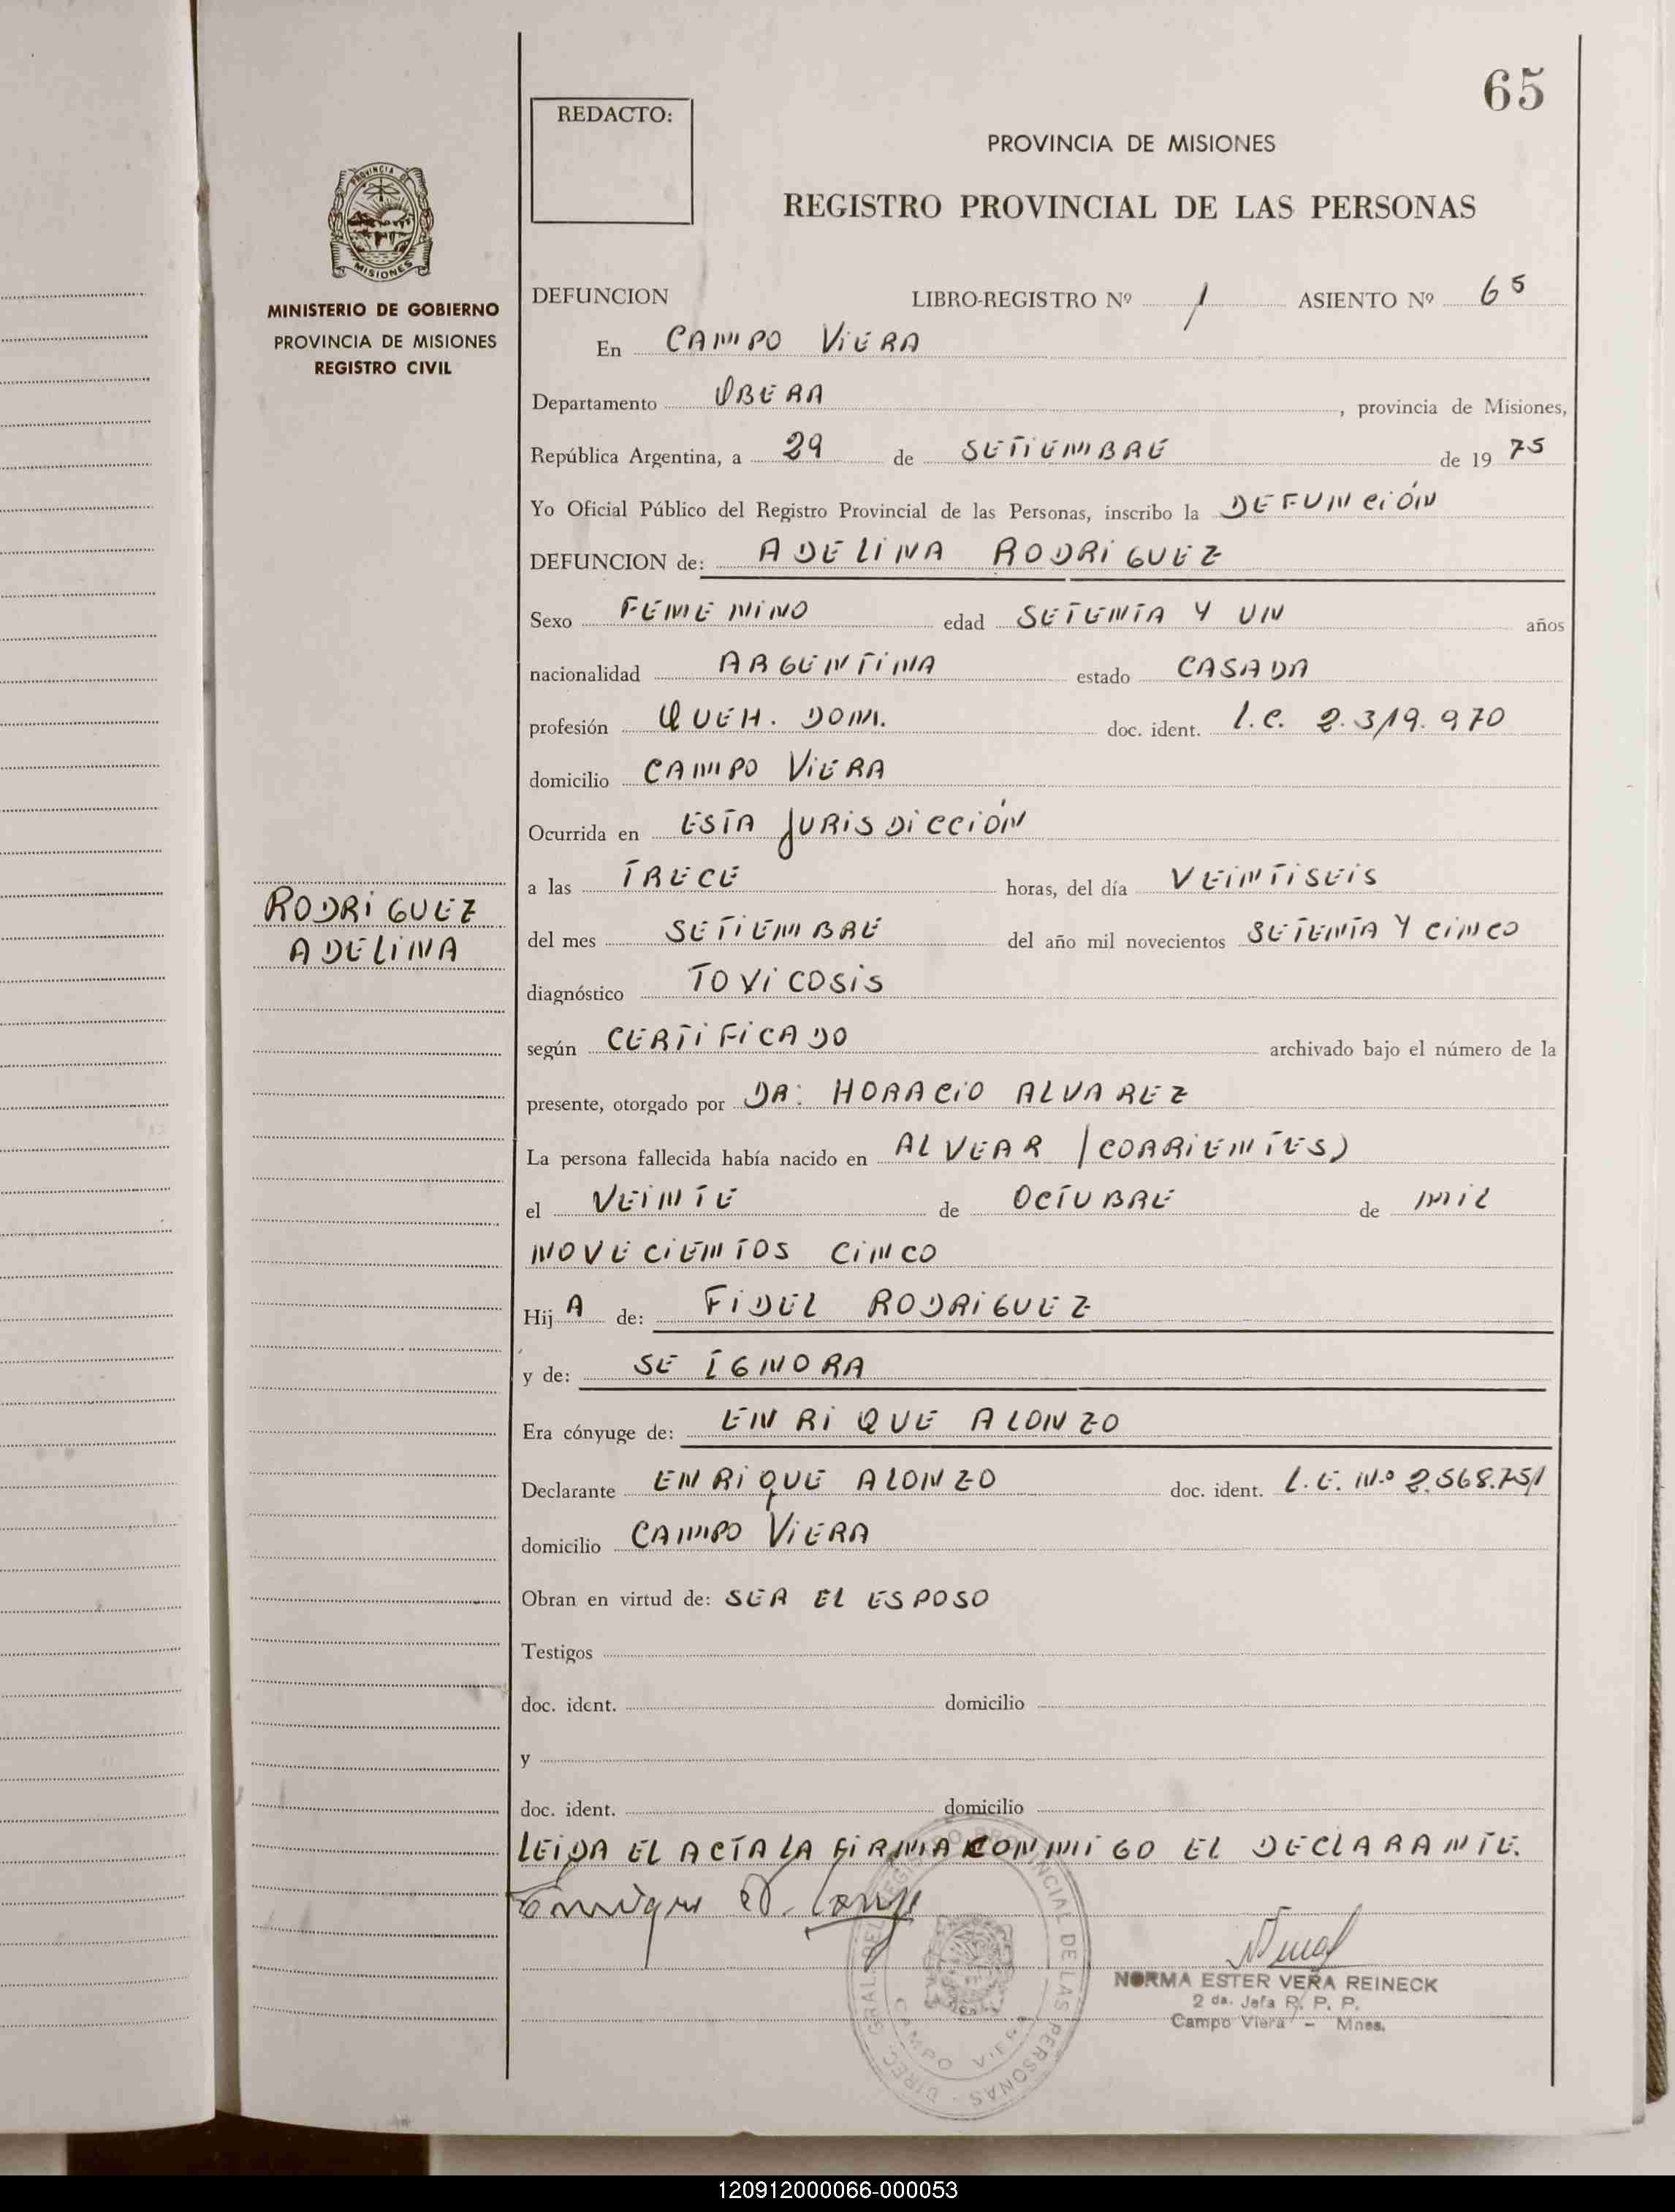 65
REDACTO:
PROVINCIA DE MISIONES
REGISTRO PROVINCIAL DE LAS PERSONAS
PROVINCIA DE
MISIONES
MINISTERIO DE GOBIERNO
PROVINCIA DE MISIONES
REGISTRO CIVIL
DEFUNCION LIBRO-REGISTRO Nº 1 ASIENTO Nº 65
En CAMPO ViERA
Departamento OBERA, provincia de Misiones,
República Argentina, a 29 de SETiEMBRE de 1975
Yo Oficial Público del Registro Provincial de las Personas, inscribo la DEFUNCiÓN
DEFUNCION de: ADELINA RODRiGUEZ
Sexo FEMENiNO edad SETENTA Y UN años
nacionalidad ARGENTiNA estado CASADA
profesión QUEH. DOM. doc. ident. L.C. 2.319.970
domicilio CAMPO ViERA
Ocurrida en ESTA JURiSDiCCiÓN
a las TRECE horas, del día VEiNTiSEiS
del mes SETiEMBRE del año mil novecientos SETENTA Y CiNCO
diagnóstico TOViCOSiS
según CERTiFiCADO archivado bajo el número de la
presente, otorgado por DR: HORACiO ALVAREZ
La persona fallecida había nacido en ALVEAR (CORRiENTES)
el VEiNTE de OCTUBRE de MiL
NOVECiENTOS CiNCO
Hij A de: FiDEL RODRiGUEZ
y de: SE IGNORA
Era cónyuge de: ENRiQUE ALONZO
Declarante ENRiQUE ALONZO doc. ident. L.E. N.º 2.568.751
domicilio CAMPO ViERA
Obran en virtud de: SER EL ESPOSO
Testigos
doc. ident. domicilio
y
doc. ident. domicilio
LEiDA EL ACTA LA FiRMA CONMiGO EL DECLARANTE.
RODRiGUEZ
ADELiNA
DIREC. GRAL. DEL REGISTRO PROVINCIAL DE LAS PERSONAS
CAMPO VIERA
NORMA ESTER VERA REINECK
2 da. Jefa R. P. P.
Campo Viera - Mnes.
120912000066-000053